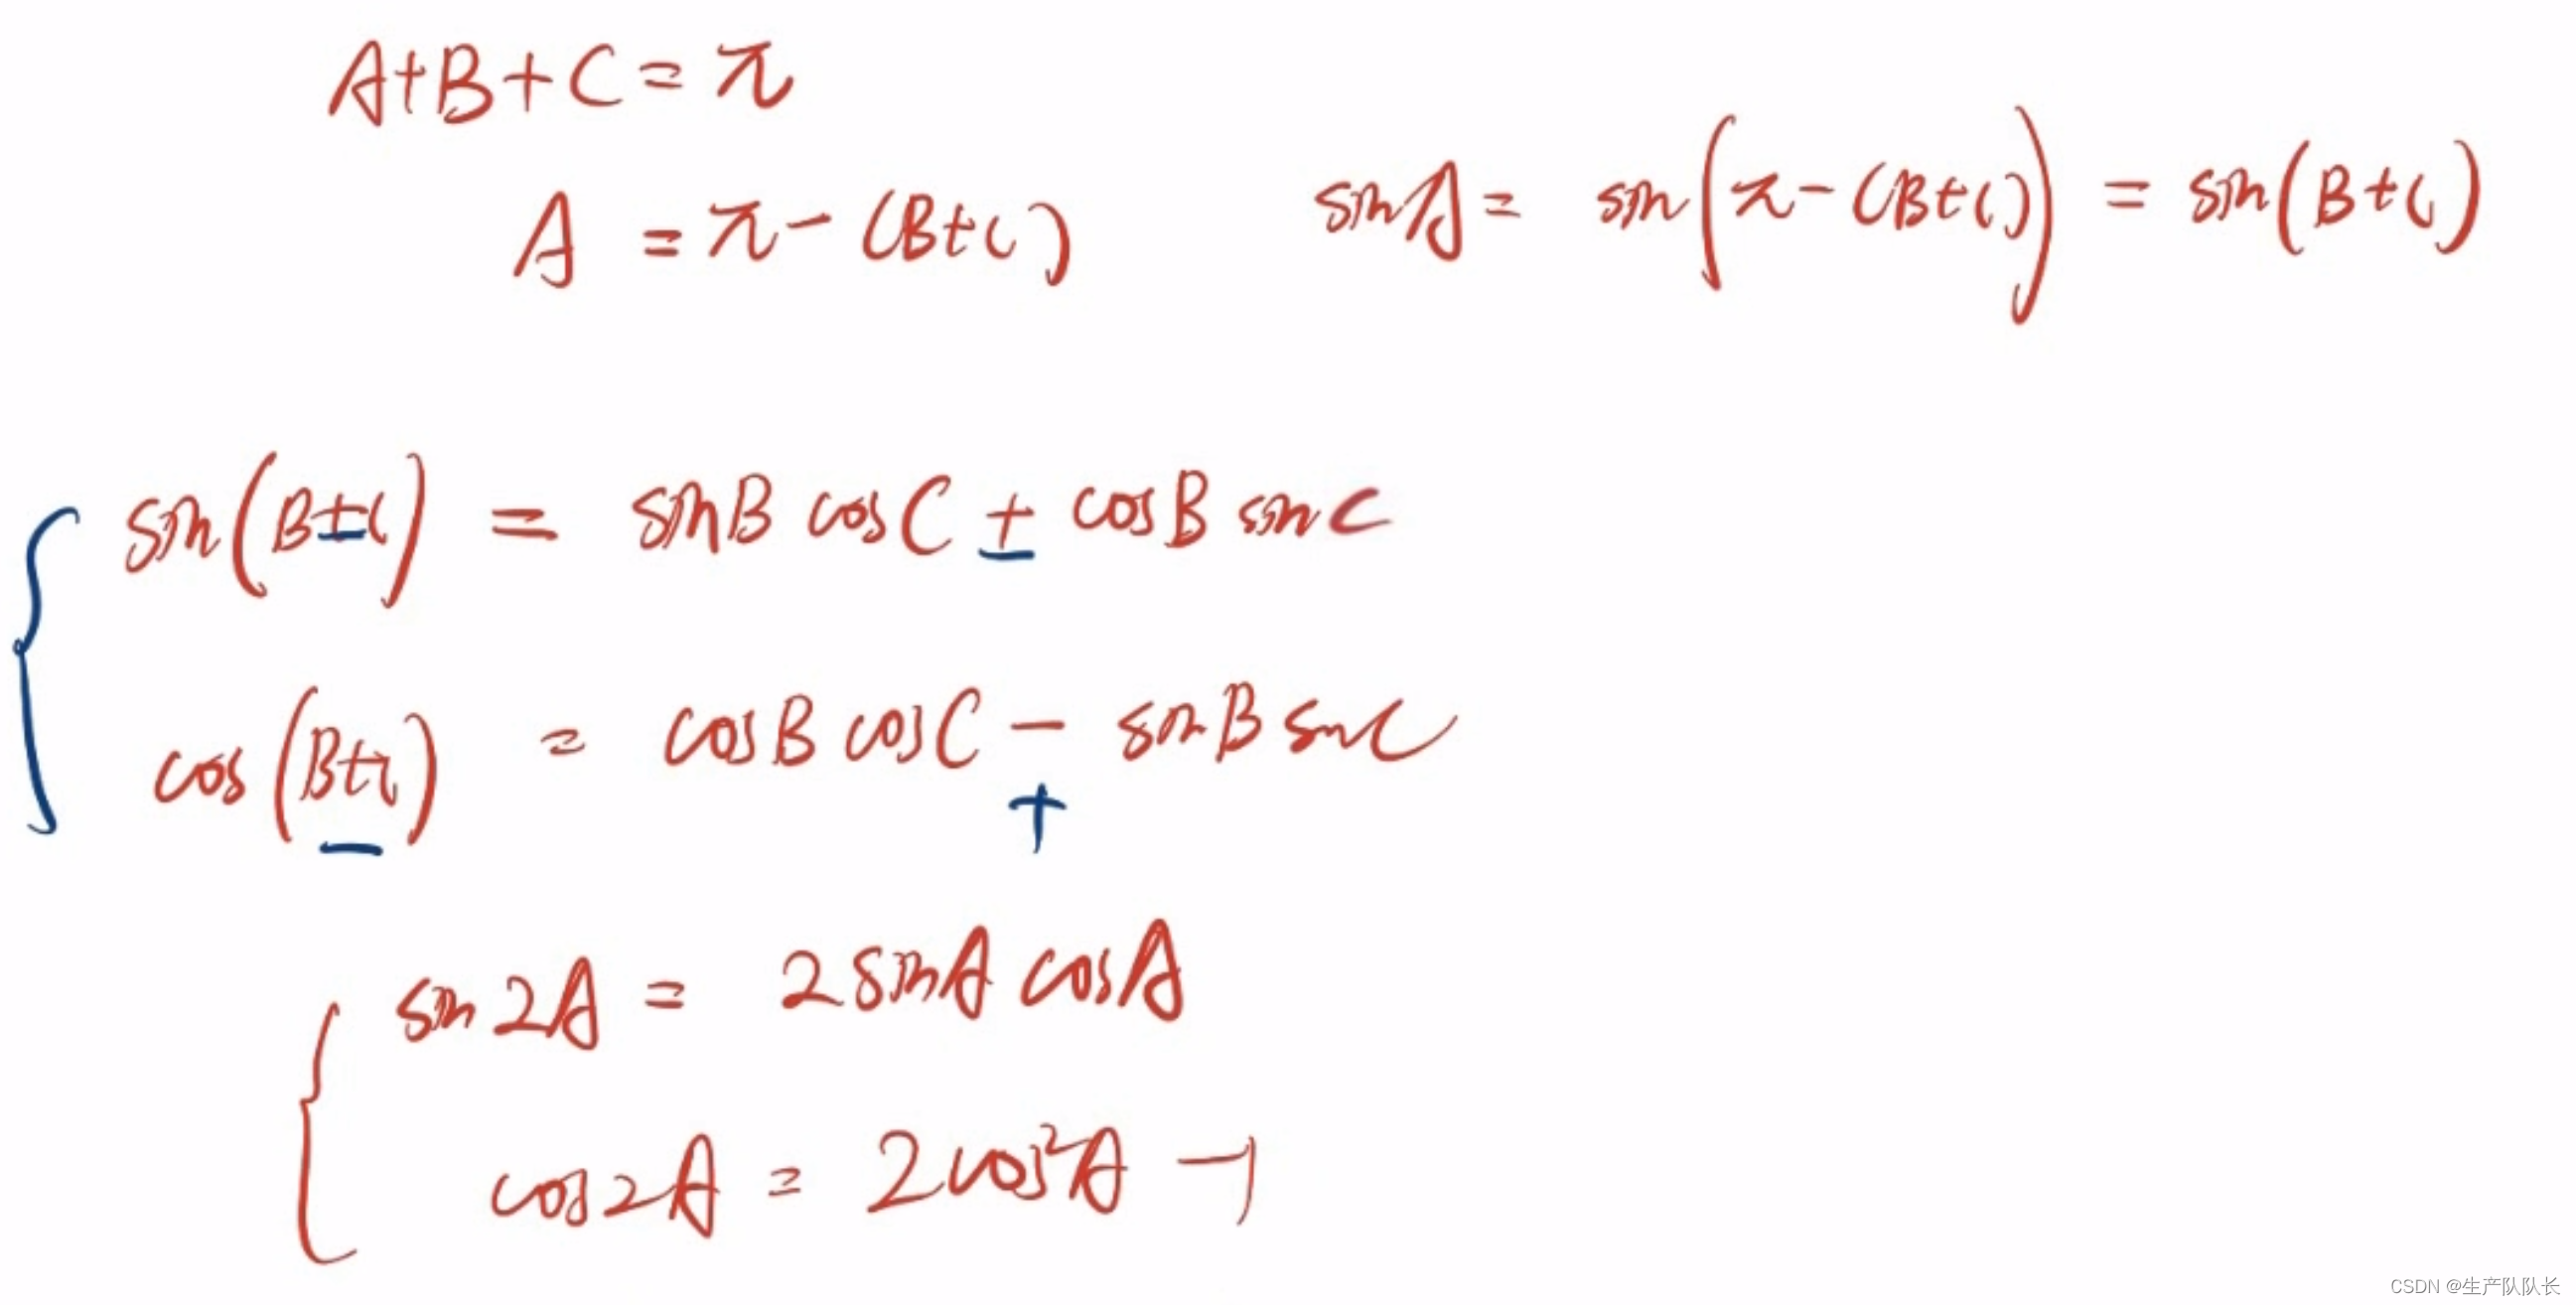 A+B+C=π
A = π-(B+C)
sinA = sin(π-(B+C)) = sin(B+C)
sin(B±C) = sinB cosC ± cosB sinC
cos(B±C) = cosB cosC - sinB sinC
+
sin2A = 2sinA cosA
cos2A = 2cos²A -1
CSDN @生产队队长